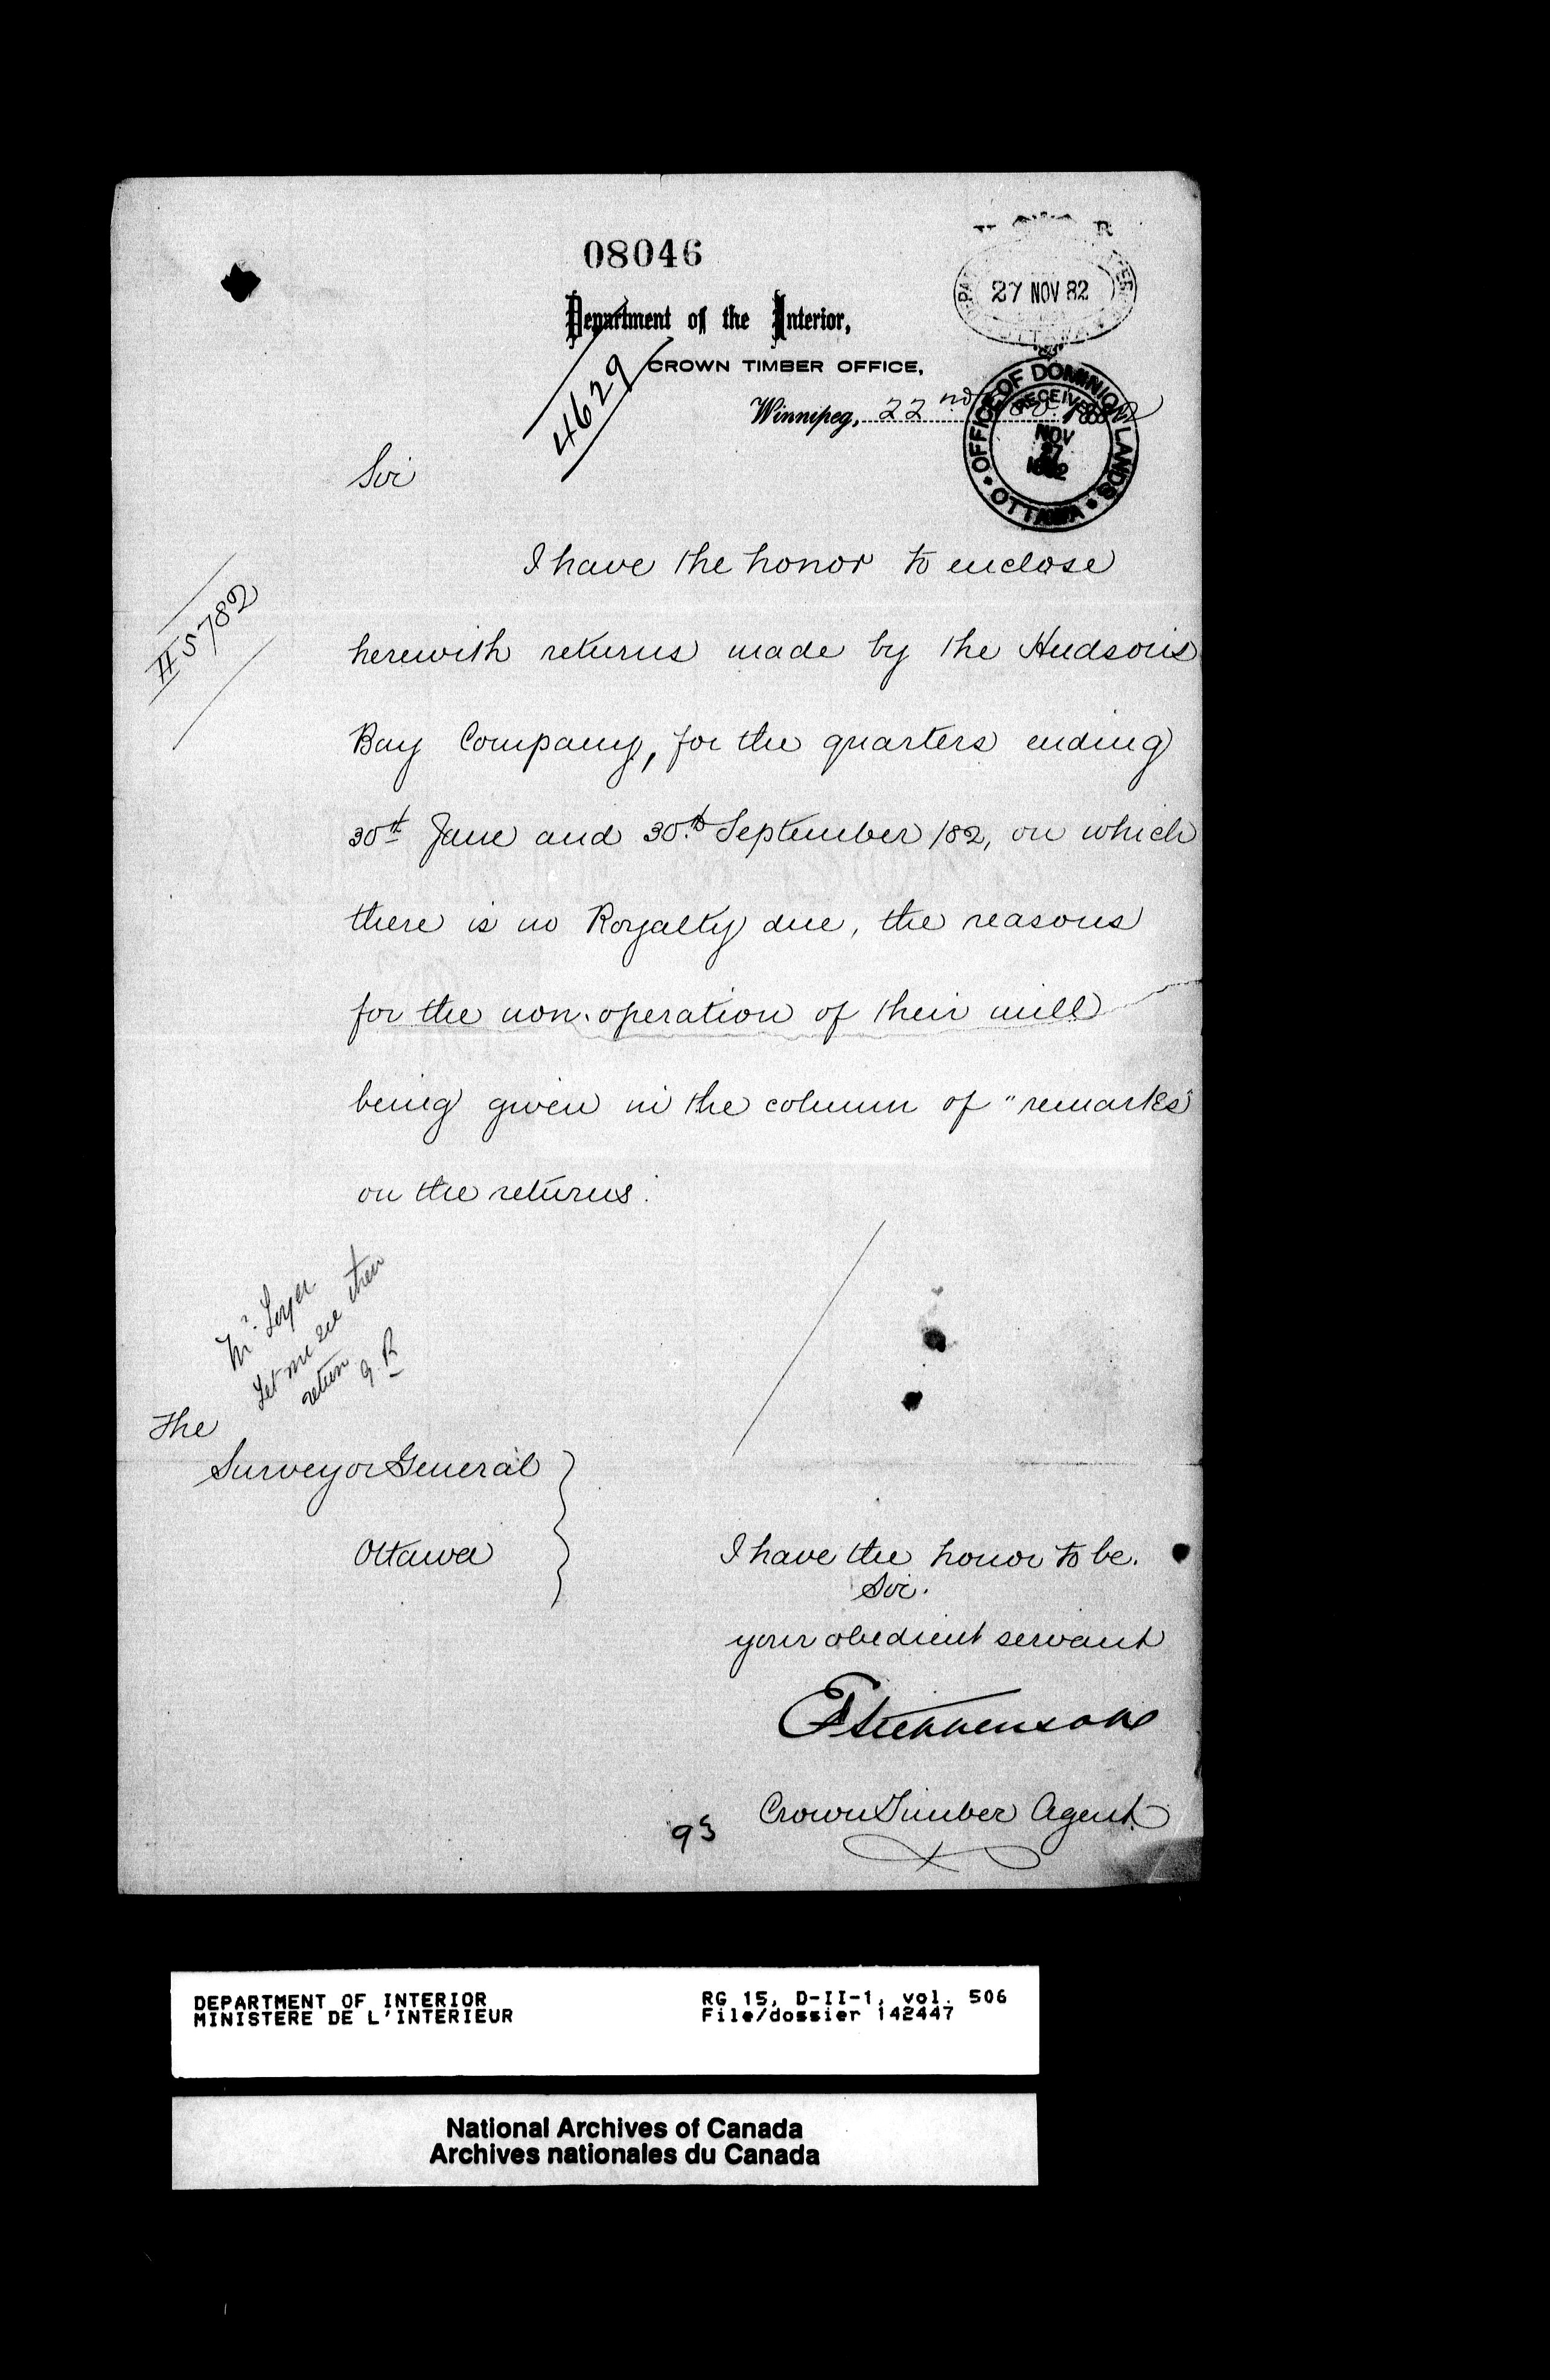 08046
27 NOV 82
OTTAWA
Department of the Interior,
CROWN TIMBER OFFICE,
4629
Winnipeg, 22nd 1882
OFFICE OF DOMINION LANDS
RECEIVED
NOV
27
1882
OTTAWA
Sir
I have the honor to enclose
#5782
herewith returns made by the Hudson's
Bay Company, for the quarters ending
30th June and 30th September /82, on which
there is no Royalty due, the reasons
for the non-operation of their mill
being given in the column of "remarks"
on the returns.
Mr.
Let me see then
return
G. R
The
Surveyor General
Ottawa
I have the honor to be.
Sir.
your obedient servant
E F Stephenson
Crown Timber Agent
93
DEPARTMENT OF INTERIOR
MINISTERE DE L'INTERIEUR
RG 15, D-II-1, vol. 506
File/dossier 142447
National Archives of Canada
Archives nationales du Canada